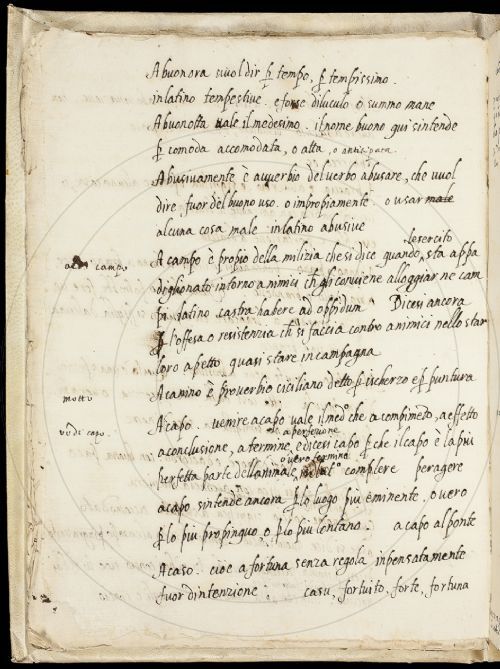 Abuonora vuol dir ꝑ tempo, ꝑ tempissimo.
in latino tempestive. e forse diluculo o summo mane
Abuonotta vale il medesimo. il nome buono qui s'intende
ꝑ comoda accomodata, o atta, o anticipata
Abusivamente è avverbio del verbo abusare, che vuol
dire fuor del buono uso. o impropiamente. o usar male
alcuna cosa male in latino abusive
lesercito
campo
A campo è propio della milizia che si dice quando sta appa
diglionato intorno a nimici ch gli conviene alloggiar ne cam
pi latino castra habere ad oppidum Dicesi ancora
ꝑ l'offesa o resistenza ch si faccia contro a nimici nello star
loro apetto quasi stare in campagna
A camino è proverbio ciciliano detto ꝑ ischerzo e ꝑ puntura
motto
A capo. venire a capo vale il med.º che a compimẽto, a effetto
vo di capo.
a perfezione
a conclusione, a termine, e dicesi capo ꝑ che il capo è la più
o vero termine
perfetta parte dell animale, in lat.º complere peragere
a capo s'intende ancora ꝑ lo luogo più eminente, o vero
ꝑ lo più propinquo, o ꝑ lo più lontano. a capo al ponte
A caso. cioè a fortuna senza regola inpensatamente
fuor d'intenzione. casu, fortuito, forte, fortuna